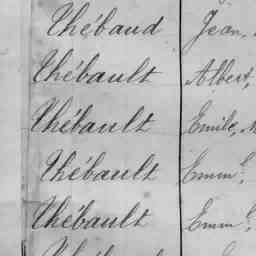 Thébaud Jean,
Thébault Albert,
Thébault Emile,
Thébault Emm^l,
Thébault Emm^l,